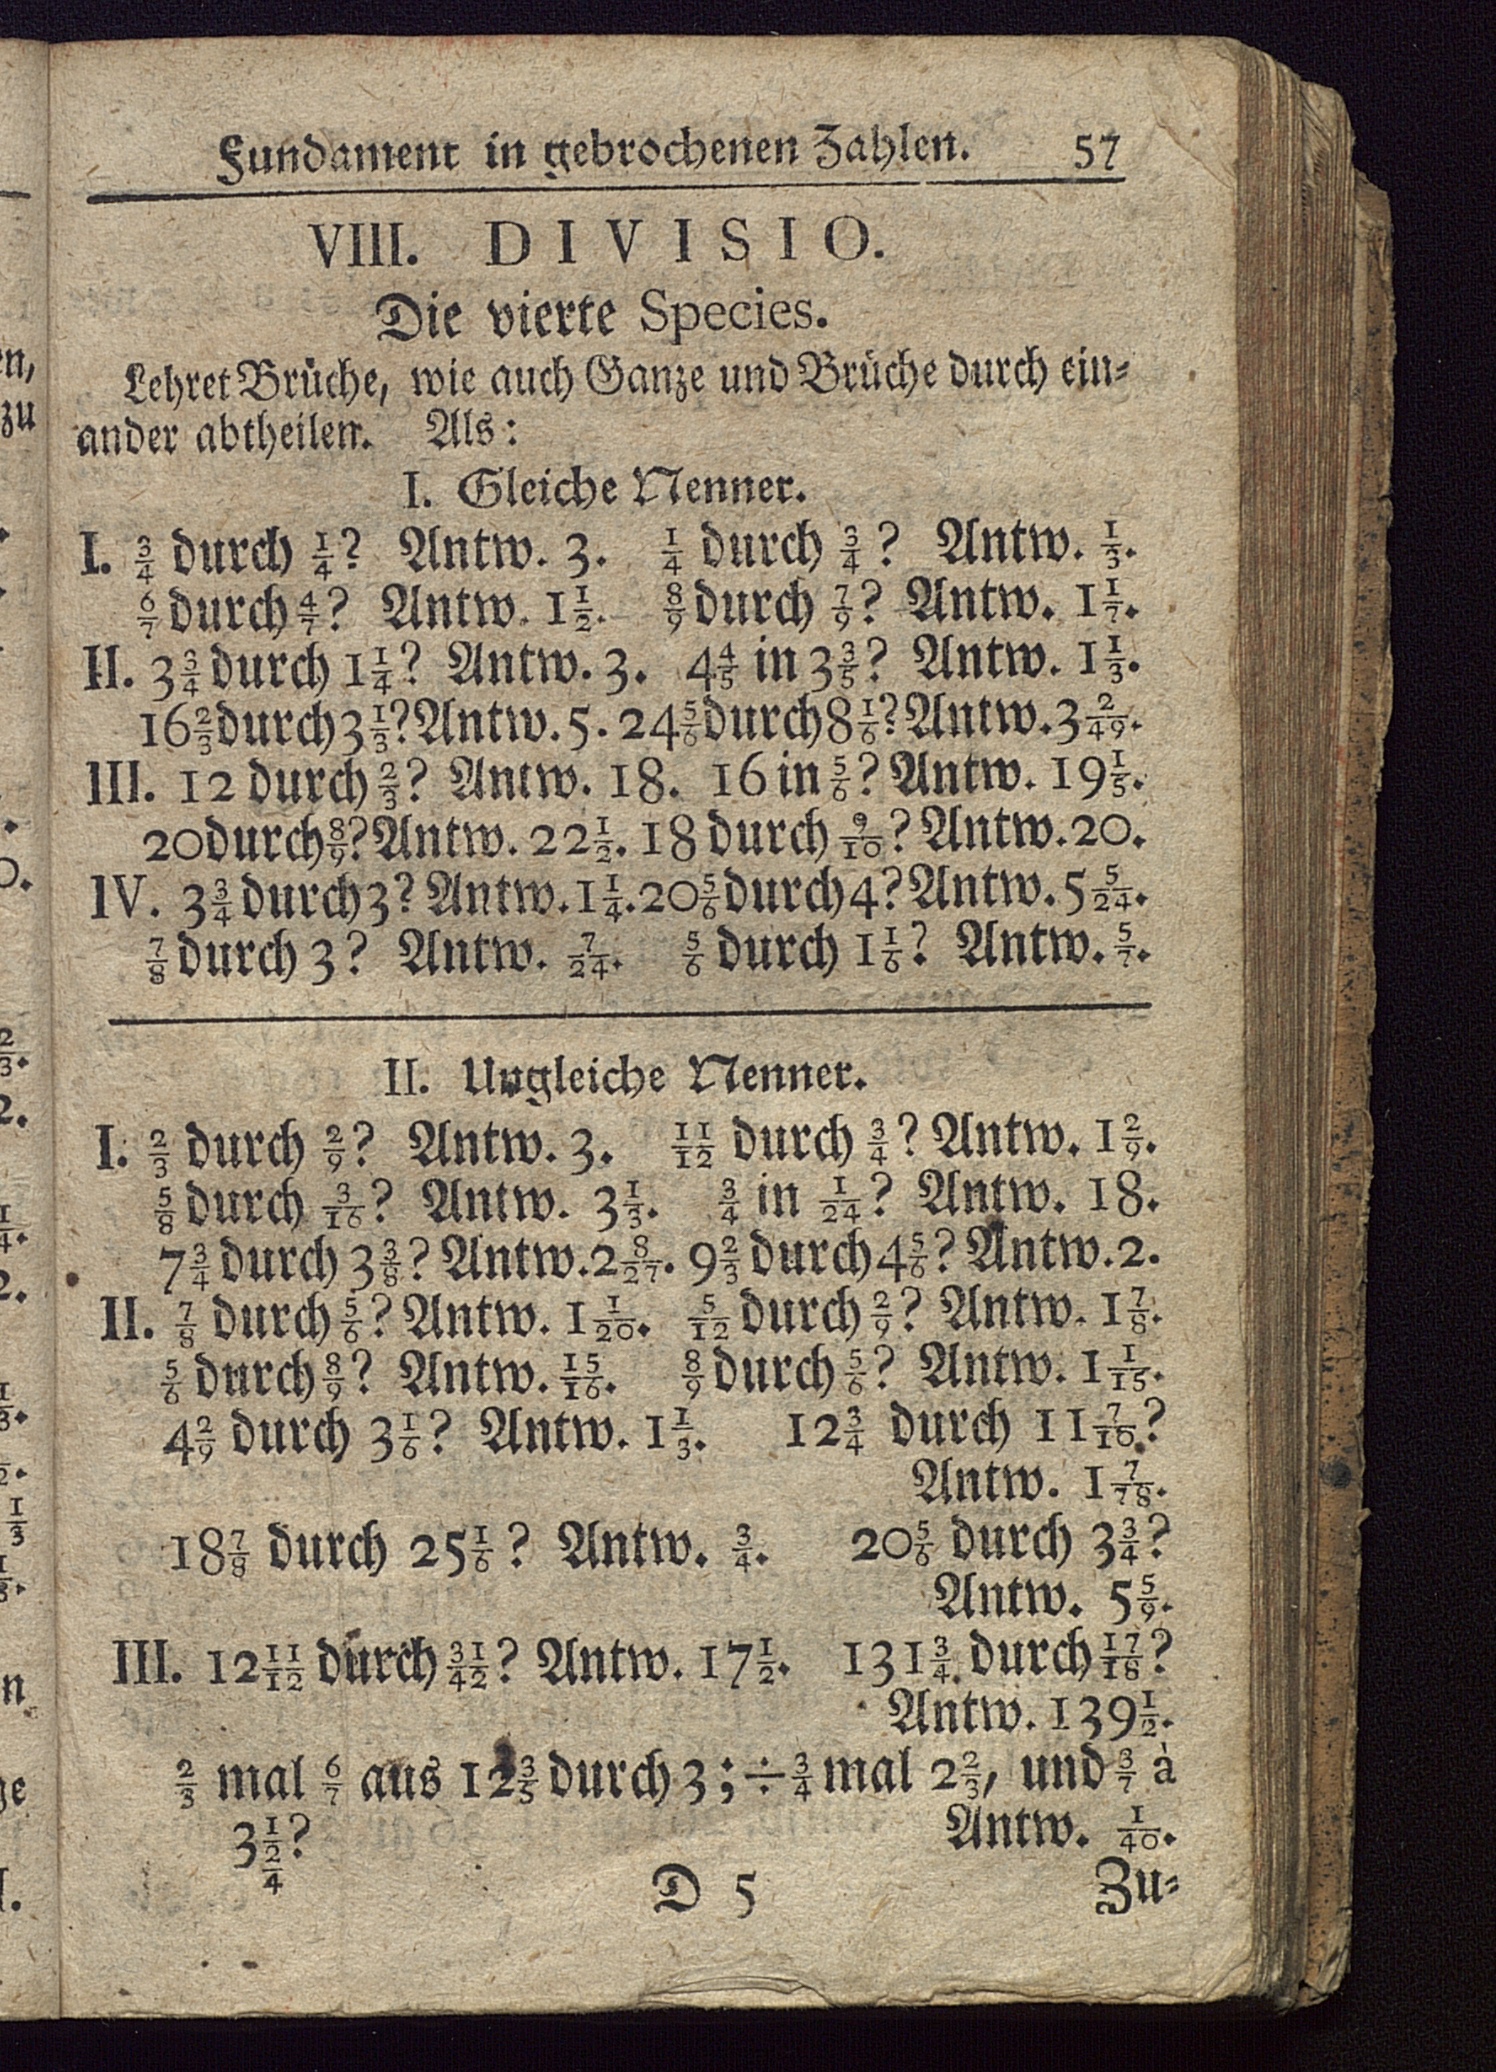 Fundament in gebrochenen Zahlen. 57
VIII. DIVISIO.
Die vierte Species.
Lehret Brüche, wie auch Ganze und Brüche durch ein-
ander abtheilen. Als:
I. Gleiche Nenner.
I. 3/4 durch 1/4? Antw. 3. 1/4 durch 3/4? Antw. 1/3.
6/7 durch 4/7? Antw. 1 1/2. 8/9 durch 7/9? Antw. 1 1/7.
II. 3 3/4 durch 1 1/4? Antw. 3. 4 4/5 in 3 3/5? Antw. 1 1/3.
16 2/3 durch 3 1/3? Antw. 5. 24 5/6 durch 8 1/6? Antw. 3 2/49.
III. 12 durch 2/3? Antw. 18. 16 in 5/6? Antw. 19 1/5.
20 durch 8/9? Antw. 22 1/2. 18 durch 9/10? Antw. 20.
IV. 3 3/4 durch 3? Antw. 1 1/4. 20 5/6 durch 4? Antw. 5 5/24.
7/8 durch 3? Antw. 7/24. 5/6 durch 1 1/6? Antw. 5/7.
II. Ungleiche Nenner.
I. 2/3 durch 2/9? Antw. 3. 11/12 durch 3/4? Antw. 1 2/9.
5/8 durch 3/16? Antw. 3 1/3. 3/4 in 1/24? Antw. 18.
7 3/4 durch 3 3/8? Antw. 2 8/27. 9 2/3 durch 4 5/6? Antw. 2.
II. 7/8 durch 5/6? Antw. 1 1/20. 5/12 durch 2/9? Antw. 1 7/8.
5/6 durch 8/9? Antw. 15/16. 8/9 durch 5/6? Antw. 1 1/15.
4 2/9 durch 3 1/6? Antw. 1 1/3. 12 3/4 durch 11 7/10?
Antw. 1 7/78.
18 7/8 durch 25 1/6? Antw. 3/4. 20 5/6 durch 3 3/4?
Antw. 5 5/9.
III. 12 11/12 durch 31/42? Antw. 17 1/2. 131 3/4 durch 17/18?
Antw. 139 1/2.
2/3 mal 6/7 aus 12 3/5 durch 3; ÷ 3/4 mal 2 2/3, und 3/7 à
3 1/2/4? Antw. 1/40.
D 5 Zu-